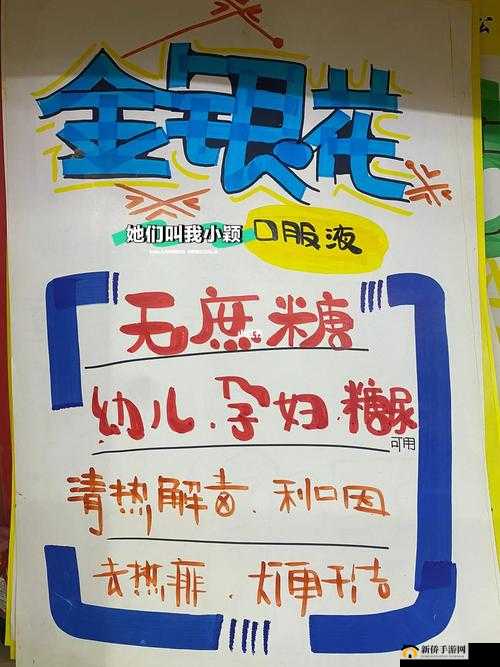 金银花
她们叫我小颖 口服液
无庶糖
幼儿.孕妇.糖尿
可用
清热解毒.利咽
去热痱.大便干结
新侨手游网